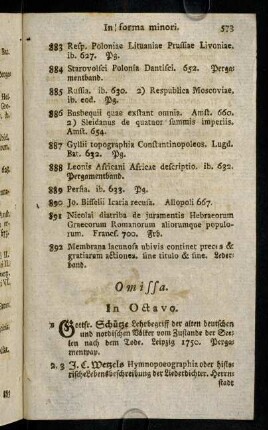 In forma minori. 573
883 Resp. Poloniae Lituaniae Prussiae Livoniae.
ib. 627. Pg.
884 Starovolsci Polonia Dantisci. 652. Perga-
mentband.
885 Russia. ib. 630. 2) Respublica Moscoviae,
ib. eod. Pg.
886 Busbequii quae exstant omnia. Amst. 660.
2) Sleidanus de quatuor summis imperiis.
Amst. 654.
887 Gyllii topographia Constantinopoleos. Lugd.
Bat. 632. Pg.
888 Leonis Africani Africae descriptio. ib. 632.
Pergamentband.
889 Persia. ib. 633. Pg.
890 Jo. Bisselii Icaria recus. Allopoli 667.
891 Nicolai diatriba de juramentis Hebraeorum
Graecorum Romanorum aliorumque populo-
rum. Francf. 700. Frb.
892 Membrana lacunosa ubivis continet preces &
gratiarum actiones. sine titulo & fine. Leder-
band.
Omissa.
In Octavo.
1 Gottfr. Schütze Lehrbegriff der alten deutschen
und nordischen Völker vom Zustande der See-
len nach dem Tode. Leipzig 1750. Perga-
mentpap.
2. 3 J. C. Wetzels Hymnopoeographia oder histo-
rische Lebensbeschreibung der Liederdichter. Herrn-
stadt